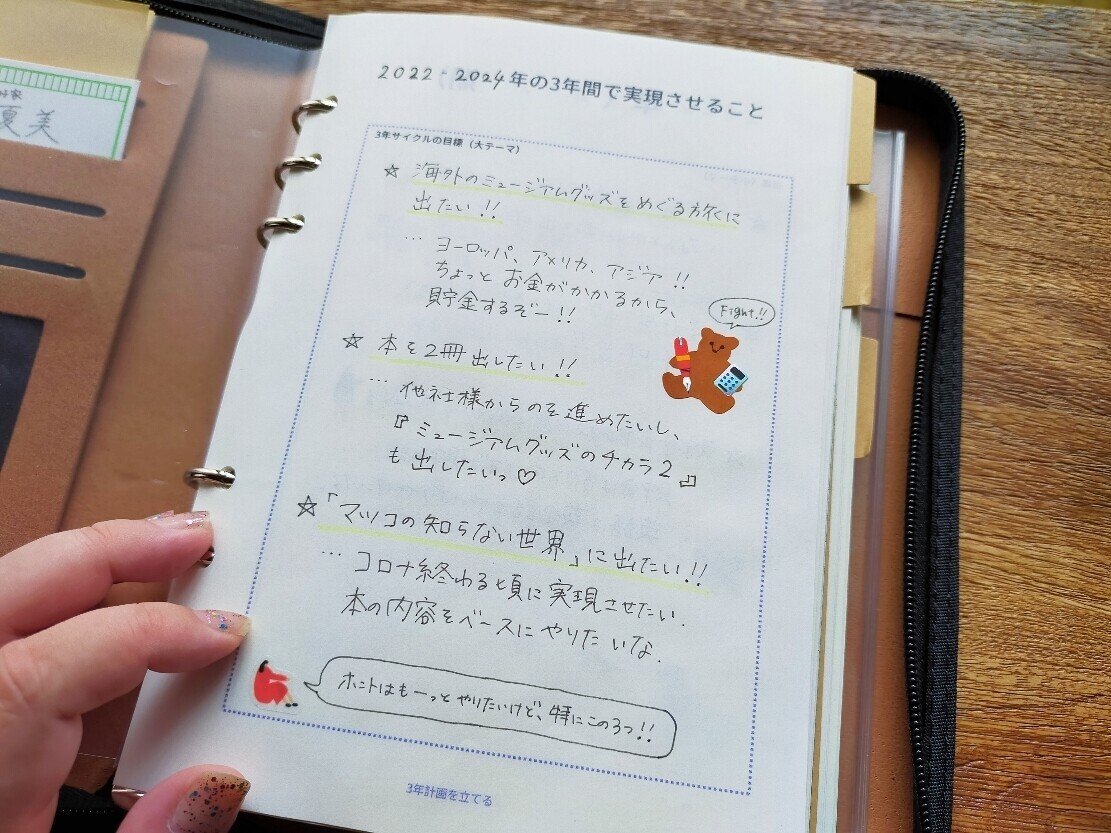 夏美
2022-2024年の3年間で実現させること
3年サイクルの目標（大テーマ）
☆ 海外のミュージアムグッズをめぐる旅に
出たい!!
… ヨーロッパ、アメリカ、アジア!!
ちょっとお金がかかるから、
貯金するぞー!!
Fight!!
☆ 本を2冊出したい!!
… 他社様からのを進めたいし、
『ミュージアムグッズのチカラ2』
も出したいっ♡
☆「マツコの知らない世界」に出たい!!
… コロナ終わる頃に実現させたい.
本の内容をベースにやりたいな.
ホントはもーっとやりたいけど、特にこの3つ!!
3年計画を立てる